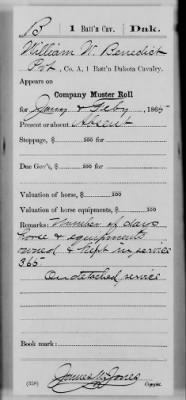 B | 1 Batt'n Cav. | Dak.
William W. Benedict
Pvt, Co. A, 1 Batt'n Dakota Cavalry.
Appears on
Company Muster Roll
for Jany & Feby, 1865
Present or absent Absent
Stoppage, $ 100 for
Due Gov't, $ 100
Valuation of horse, $ 100
Valuation of horse equipments, $ 100
Remarks: Number of days
horse & equipments
owned & kept in service
365
On detached service
Book mark:
James M. Jones
(358) Copyist.